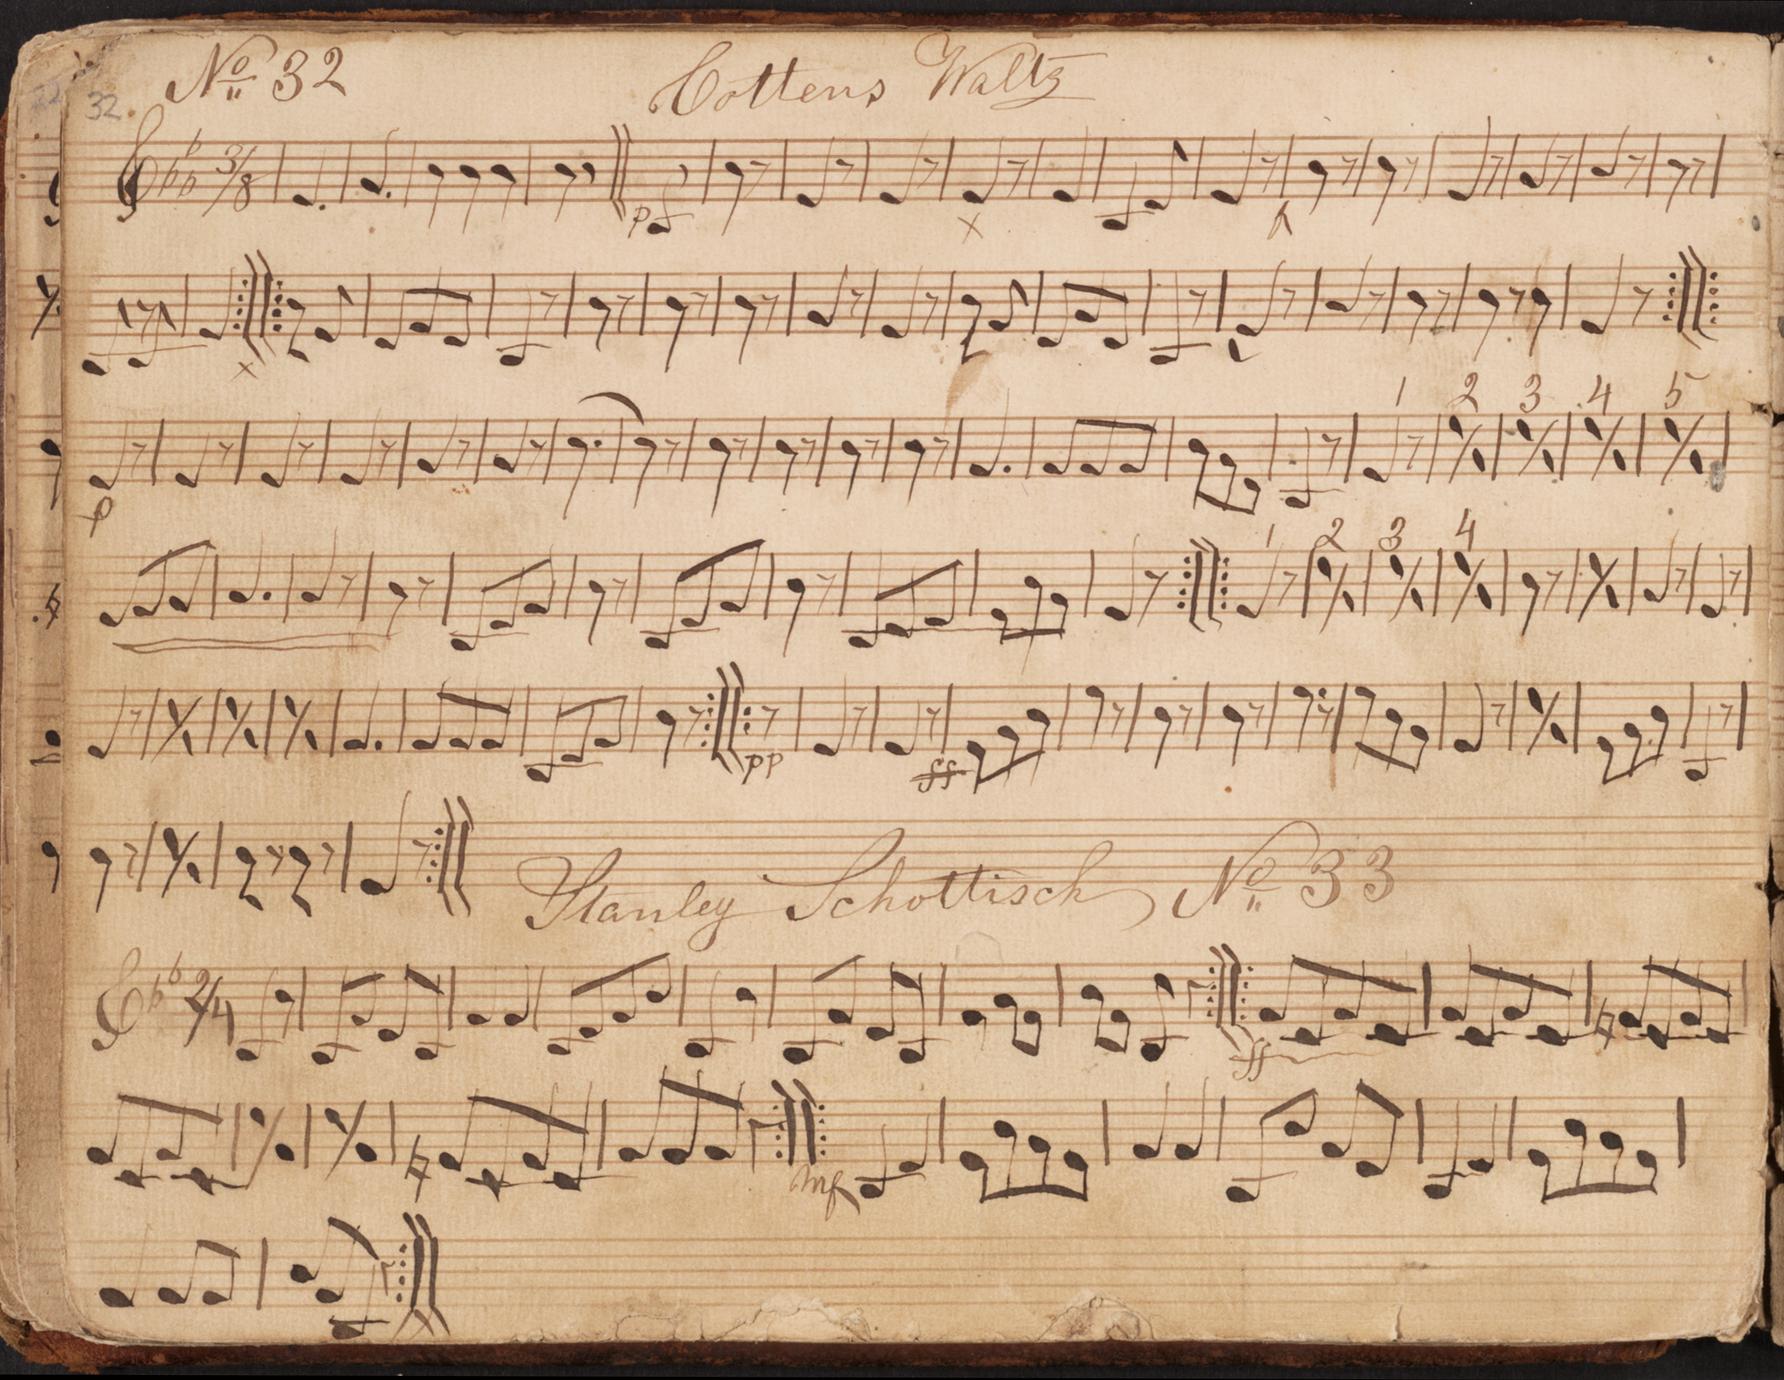 No 32 Cottens Waltz
32.
3/8
p
p
1 2 3 4 5
1 2 3 4
pp ff
Stanley Schottisch No 33
2/4
ff
mf